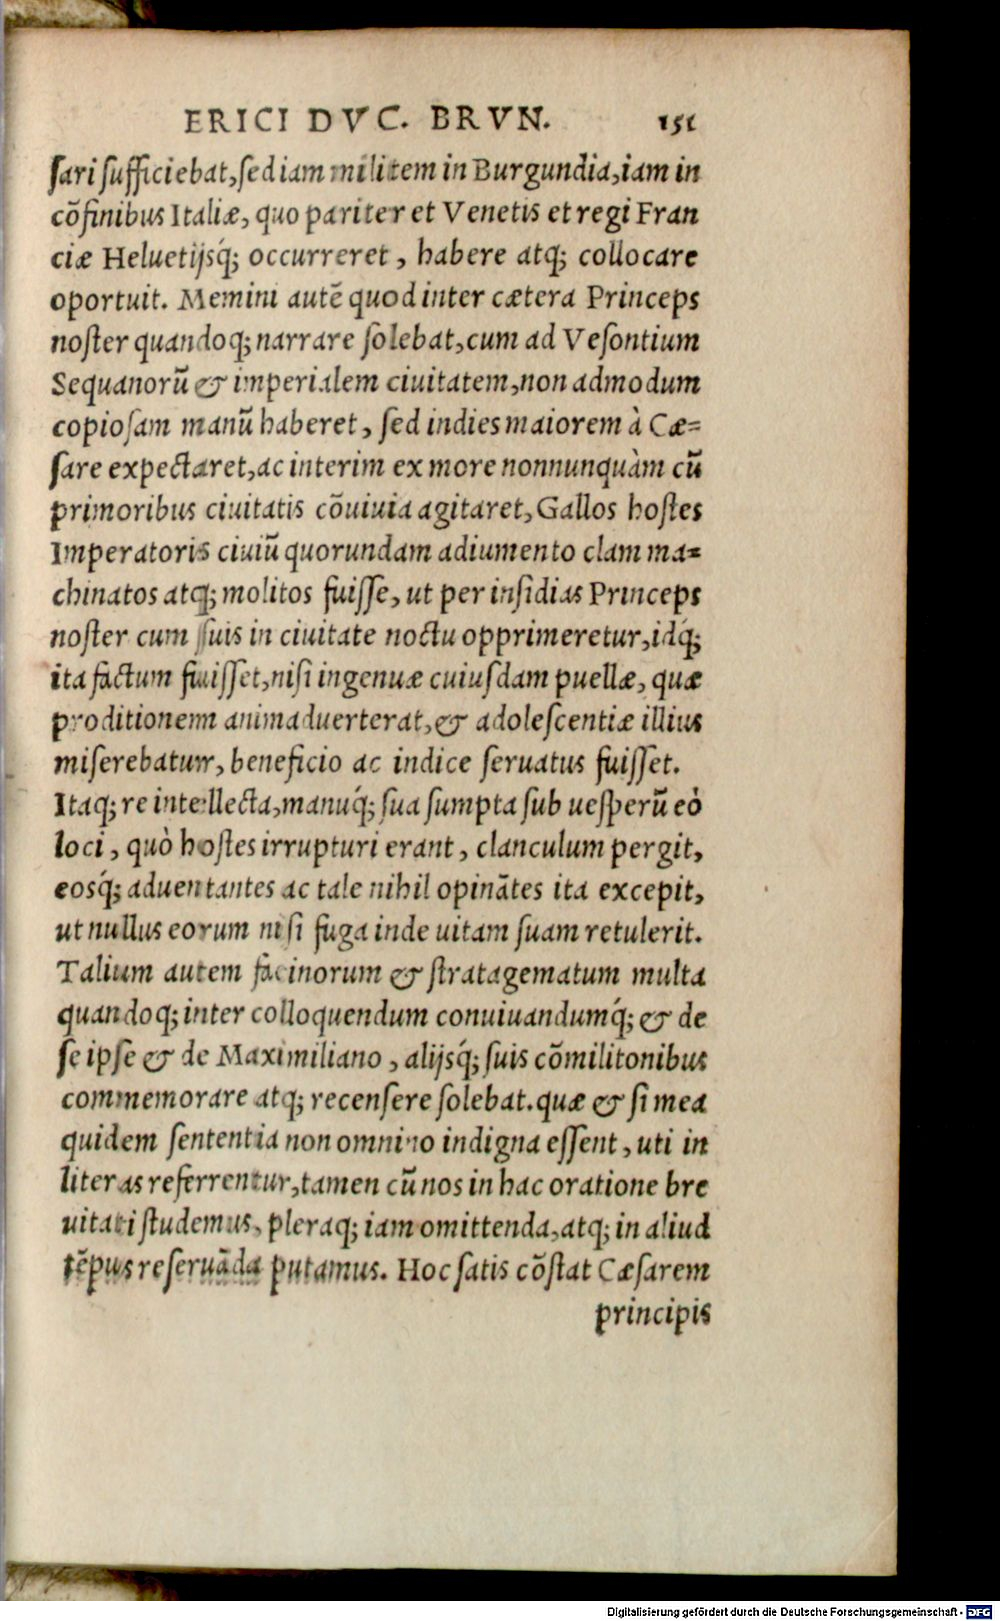 ERICI DVC. BRVN. 151
ſari ſufficiebat, ſed iam militem in Burgundia, iam in
cõfinibus Italiæ, quo pariter et Venetis et regi Fran
ciæ Heluetijsq́; occurreret, habere atq; collocare
oportuit. Memini autẽ quod inter cætera Princeps
noſter quandoq; narrare ſolebat, cum ad Veſontium
Sequanorũ & imperialem ciuitatem, non admodum
copioſam manũ haberet, ſed indies maiorem à Cæ=
ſare expectaret, ac interim ex more nonnunquàm cũ
primoribus ciuitatis cõuiuia agitaret, Gallos hoſtes
Imperatoris ciuiũ quorundam adiumento clam ma=
chinatos atq; molitos fuiſſe, ut per inſidias Princeps
noſter cum ſuis in ciuitate noctu opprimeretur, idq́;
ita factum fuiſſet, niſi ingenuæ cuiuſdam puellæ, quæ
proditionem animaduerterat, & adoleſcentiæ illius
miſerebatur, beneficio ac indice ſeruatus fuiſſet.
Itaq; re intellecta, manuq́; ſua ſumpta ſub ueſperũ eò
loci, quò hoſtes irrupturi erant, clanculum pergit,
eosq́; aduentantes ac tale nihil opinãtes ita excepit,
ut nullus eorum niſi fuga inde uitam ſuam retulerit.
Talium autem facinorum & ſtratagematum multa
quandoq; inter colloquendum conuiuandumq́; & de
ſe ipſe & de Maximiliano, alijsq́; ſuis cõmilitonibus
commemorare atq; recenſere ſolebat. quæ & ſi mea
quidem ſententia non omnino indigna eſſent, uti in
literas referrentur, tamen cũ nos in hac oratione bre
uitati ſtudemus, pleraq; iam omittenda, atq; in aliud
tẽpus reſeruãda putamus. Hoc ſatis cõſtat Cæſarem
principis
Digitalisierung gefördert durch die Deutsche Forschungsgemeinschaft - DFG